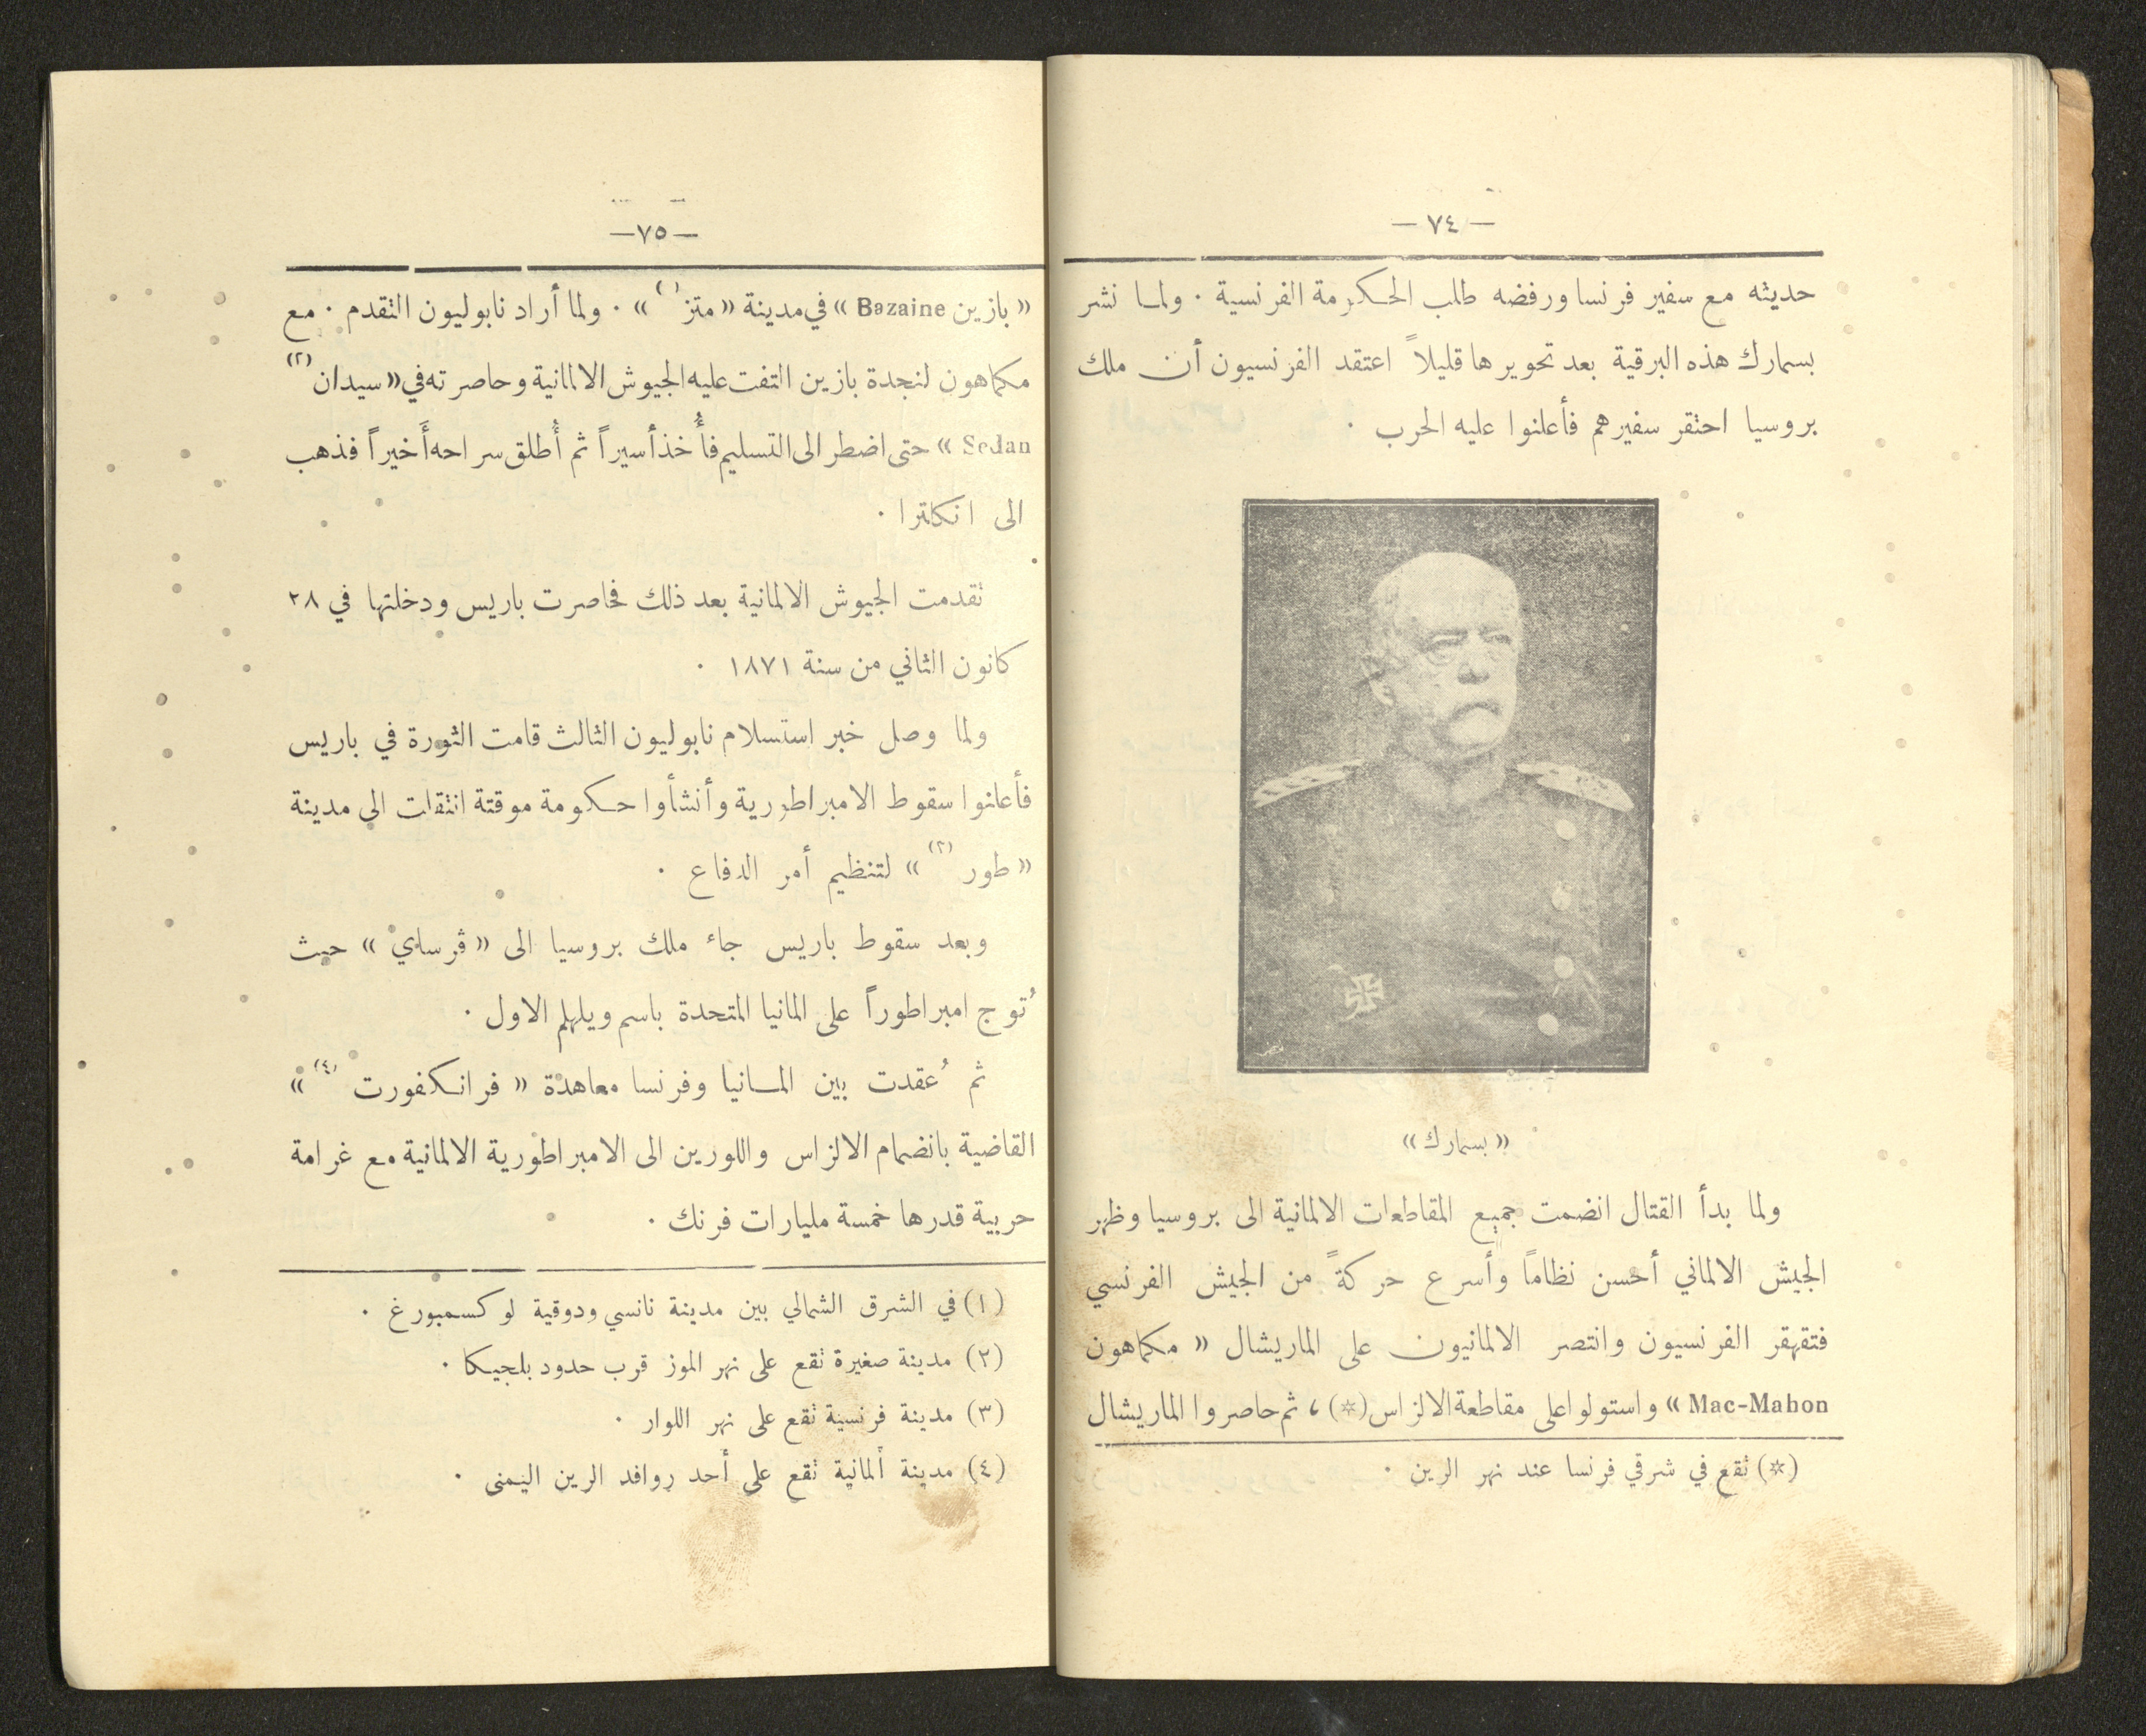 — ٧٤ —
حديثه مع سفير فرنسا ورفضه طلب الحكومة الفرنسية . ولما نشر
بسمارك هذه البرقية بعد تحويرها قليلاً اعتقد الفرنسيون أن ملك
بروسيا احتقر سفيرهم فأعلنوا عليه الحرب .
« بسمارك »
ولما بدأ القتال انضمت جميع المقاطعات الالمانية الى بروسيا وظهر
الجيش الالماني أحسن نظاماً وأسرع حركةً من الجيش الفرنسي
فتقهقر الفرنسيون وانتصر الالمانيون على الماريشال « مكماهون
Mac-Mahon » واستولوا على مقاطعة الالزاس (*) ، ثم حاصروا الماريشال
(*) تقع في شرقي فرنسا عند نهر الرين .
— ٧٥ —
« بازين Bazaine » في مدينة « متز (١) » . ولما أراد نابوليون التقدم . مع
مكماهون لنجدة بازين التفت عليه الجيوش الالمانية وحاصرته في « سيدان (٢)
Sedan » حتى اضطر الى التسليم فأُخذ أسيراً ثم أُطلق سراحه أَخيراً فذهب
الى انكلترا .
تقدمت الجيوش الالمانية بعد ذلك فحاصرت باريس ودخلتها في ٢٨
كانون الثاني من سنة ١٨٧١ .
ولما وصل خبر استسلام نابوليون الثالث قامت الثورة في باريس
فأعلنوا سقوط الامبراطورية وأنشأوا حكومة موقتة انتقلت الى مدينة
« طور (٣) » لتنظيم أمر الدفاع .
وبعد سقوط باريس جاء ملك بروسيا الى « ڤرساي » حيث
تُوج امبراطوراً على المانيا المتحدة باسم ويلهلم الاول .
ثم عُقدت بين المانيا وفرنسا معاهدة « فرانكفورت (٤) »
القاضية بانضمام الالزاس واللورين الى الامبراطورية الالمانية مع غرامة
حربية قدرها خمسة مليارات فرنك .
(١) في الشرق الشمالي بين مدينة نانسي ودوقية لوكسمبورغ .
(٢) مدينة صغيرة تقع على نهر الموز قرب حدود بلجيكا .
(٣) مدينة فرنسية تقع على نهر اللوار .
(٤) مدينة ألمانية تقع على أحد روافد الرين اليمنى .